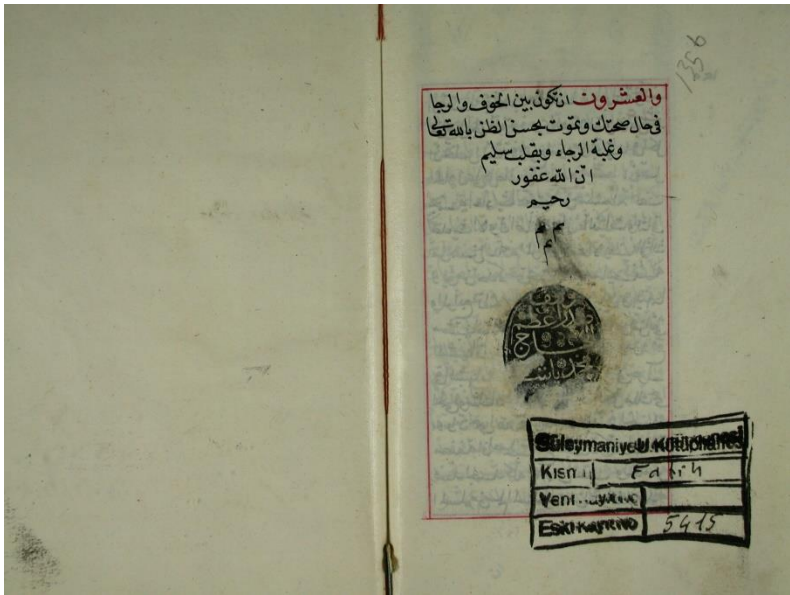 1356
والعشرون ان تكون بين الخوف والرجا
في حال صحتك وتموت بحسن الظن بالله تعالى
وغلبة الرجاء وبقلب سليم
ان الله غفور
رحيم
م م
م
Süleymaniye U. Kütüphanesi
Kısmı Fatih
Yeni Kayıt No
Eski Kayıt No 5415